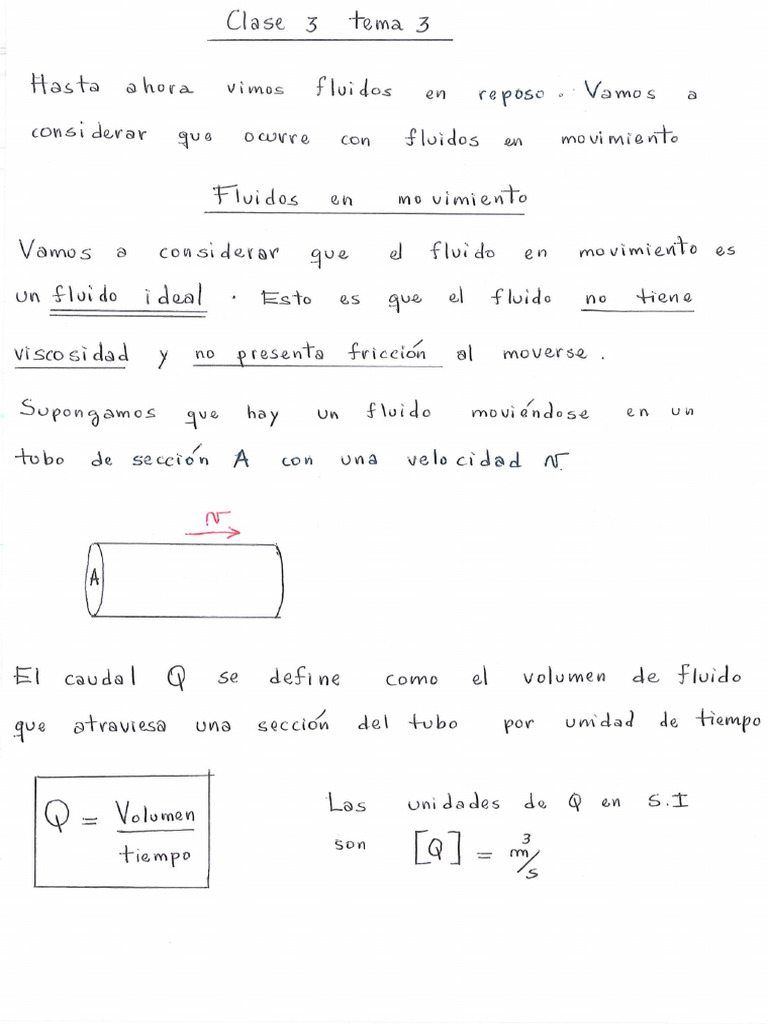 Clase 3 tema 3
Hasta ahora vimos fluidos en reposo. Vamos a
considerar que ocurre con fluidos en movimiento
Fluidos en movimiento
Vamos a considerar que el fluido en movimiento es
un fluido ideal. Esto es que el fluido no tiene
viscosidad y no presenta fricción al moverse.
Supongamos que hay un fluido moviéndose en un
tubo de sección A con una velocidad v
v
A
El caudal Q se define como el volumen de fluido
que atraviesa una sección del tubo por unidad de tiempo
Q = Volumen / tiempo
Las unidades de Q en S.I
son [Q] = m³/s